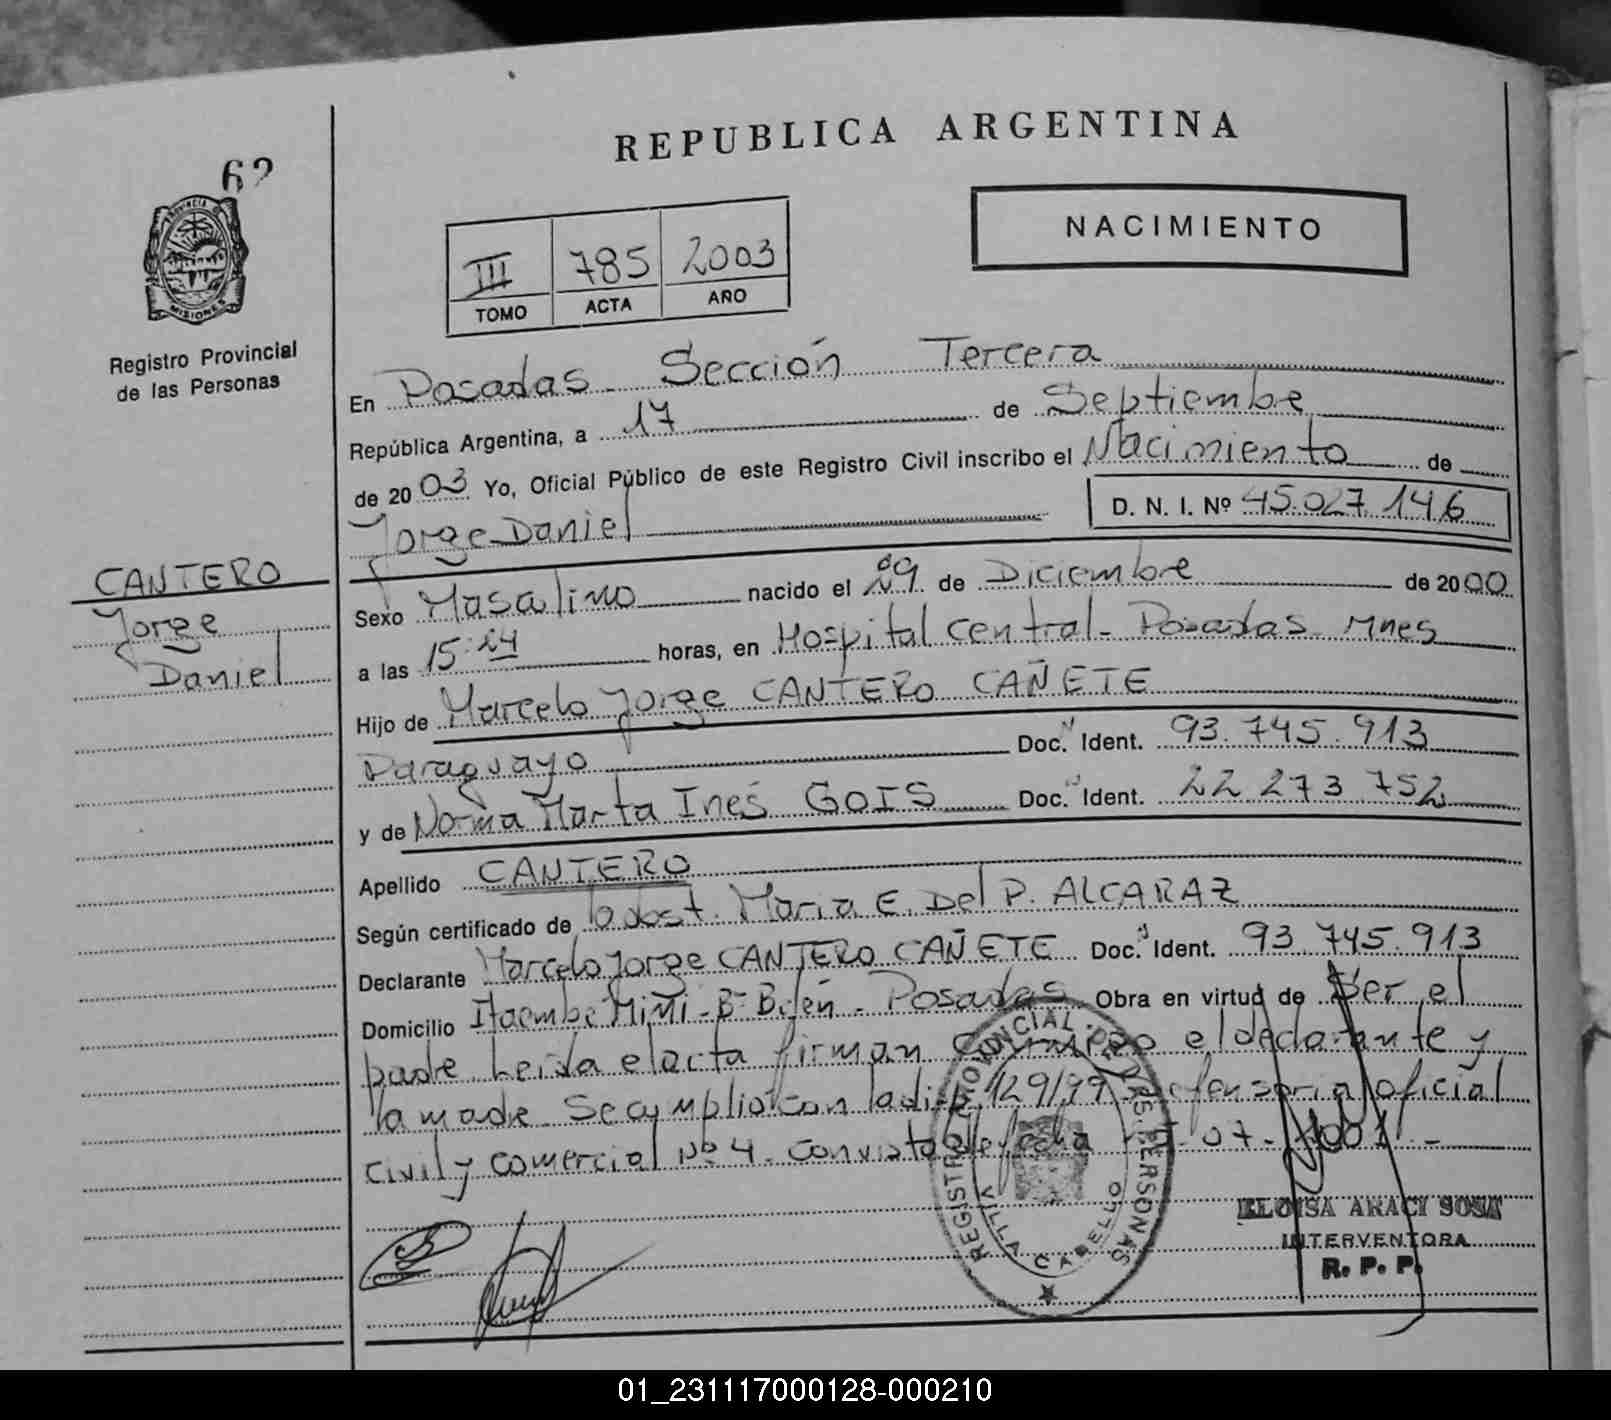 REPUBLICA ARGENTINA
62
PROVINCIA
MISIONES
Registro Provincial
de las Personas
III 785 2003
TOMO ACTA AÑO
NACIMIENTO
En Posadas Sección Tercera
República Argentina, a 17 de Septiembre
de 2003 Yo, Oficial Público de este Registro Civil inscribo el Nacimiento de
Jorge Daniel
D. N. I. Nº 45.027.146
CANTERO
Jorge
Daniel
Sexo Masculino nacido el 29 de Diciembre de 2000
a las 15:24 horas, en Hospital Central - Posadas Mnes
Hijo de Marcelo Jorge CANTERO CAÑETE
Paraguayo Doc. Ident. 93.745.913
y de Norma Marta Inés GOIS Doc. Ident. 22 273 752
Apellido CANTERO
Según certificado de Obst. Maria E. Del P. ALCARAZ
Declarante Marcelo Jorge CANTERO CAÑETE Doc. Ident. 93.745.913
Domicilio Itaembé Mini - Bº Belén - Posadas Obra en virtud de Ser el
padre Leida el acta firman conmigo el declarante y
la madre Se cumplió con la disp. 129/99 Defensoria oficial
civil y comercial Nº 4. con vista de fecha 07-
REGISTRO PROVINCIAL DE LAS PERSONAS
VILLA CABELLO
ELOISA ARACI SOSA
INTERVENTORA
R. P. P.
01_231117000128-000210